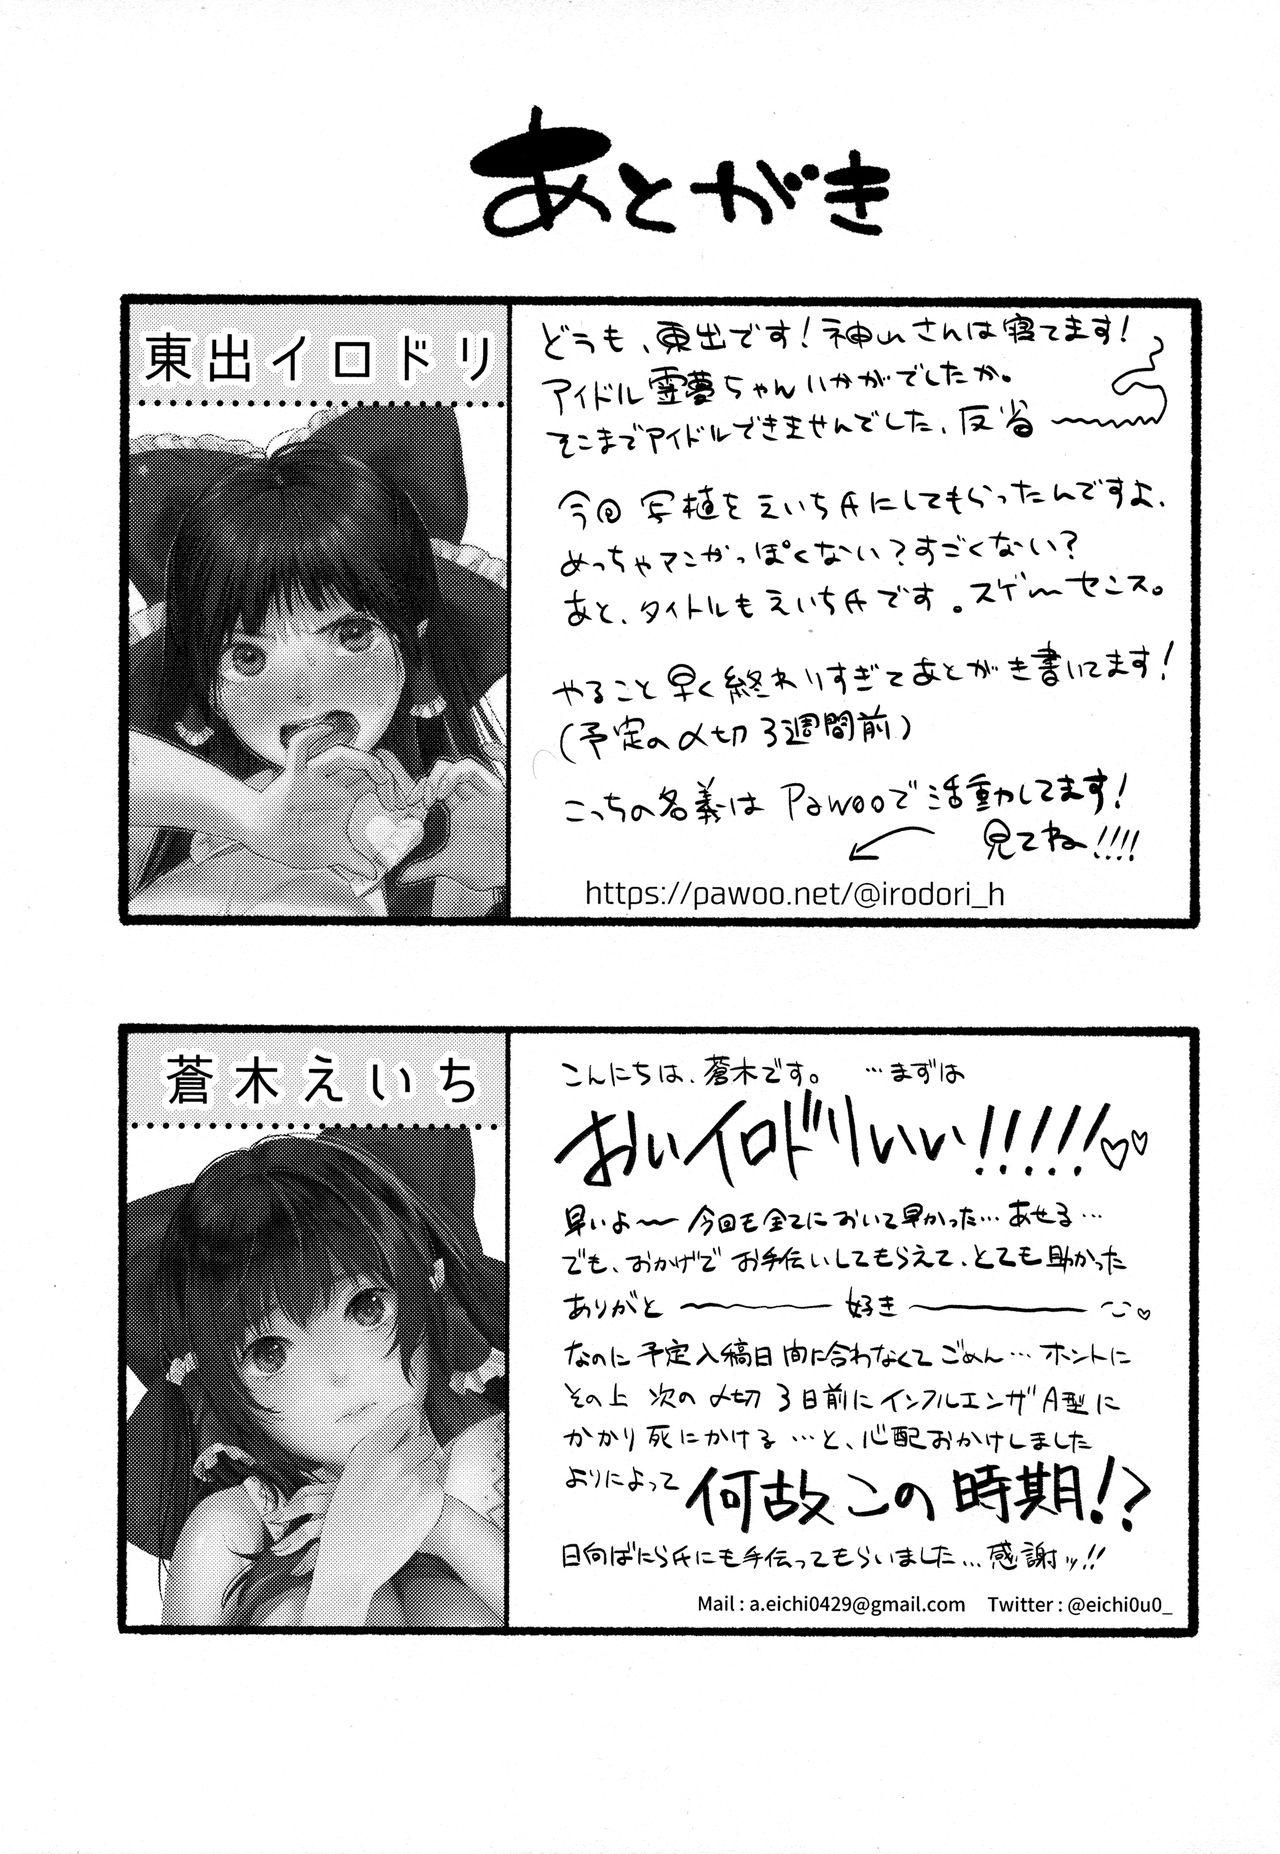 あとがき
東出イロドリ
どうも、東出です！神山さんは寝てます！
アイドル霊夢ちゃんいかがでしたか。
そこまでアイドルできませんでした、反省
今回写植をえいち氏にしてもらったんですよ、
めっちゃマンガっぽくない？すごくない？
あと、タイトルもえいち氏です。スゲーセンス。
やること早く終わりすぎてあとがき書いてます！
(予定の〆切3週間前)
こっちの名義はPawooで活動してます！
見てね!!!!
https://pawoo.net/@irodori_h
蒼木えいち
こんにちは、蒼木です。 …まずは
おいイロドリいい!!!!!♡♡
早いよ〜今回も全てにおいて早かった…あせる…
でも、おかげでお手伝いしてもらえて、とても助かった
ありがと――――好き――――♡
なのに予定入稿日間に合わなくてごめん…ホントに
その上次の〆切3日前にインフルエンザA型に
かかり死にかける…と、心配おかけしました
よりによって何故この時期!?
日向ばにら氏にも手伝ってもらいました…感謝ッ!!
Mail : a.eichi0429@gmail.com Twitter : @eichi0u0_